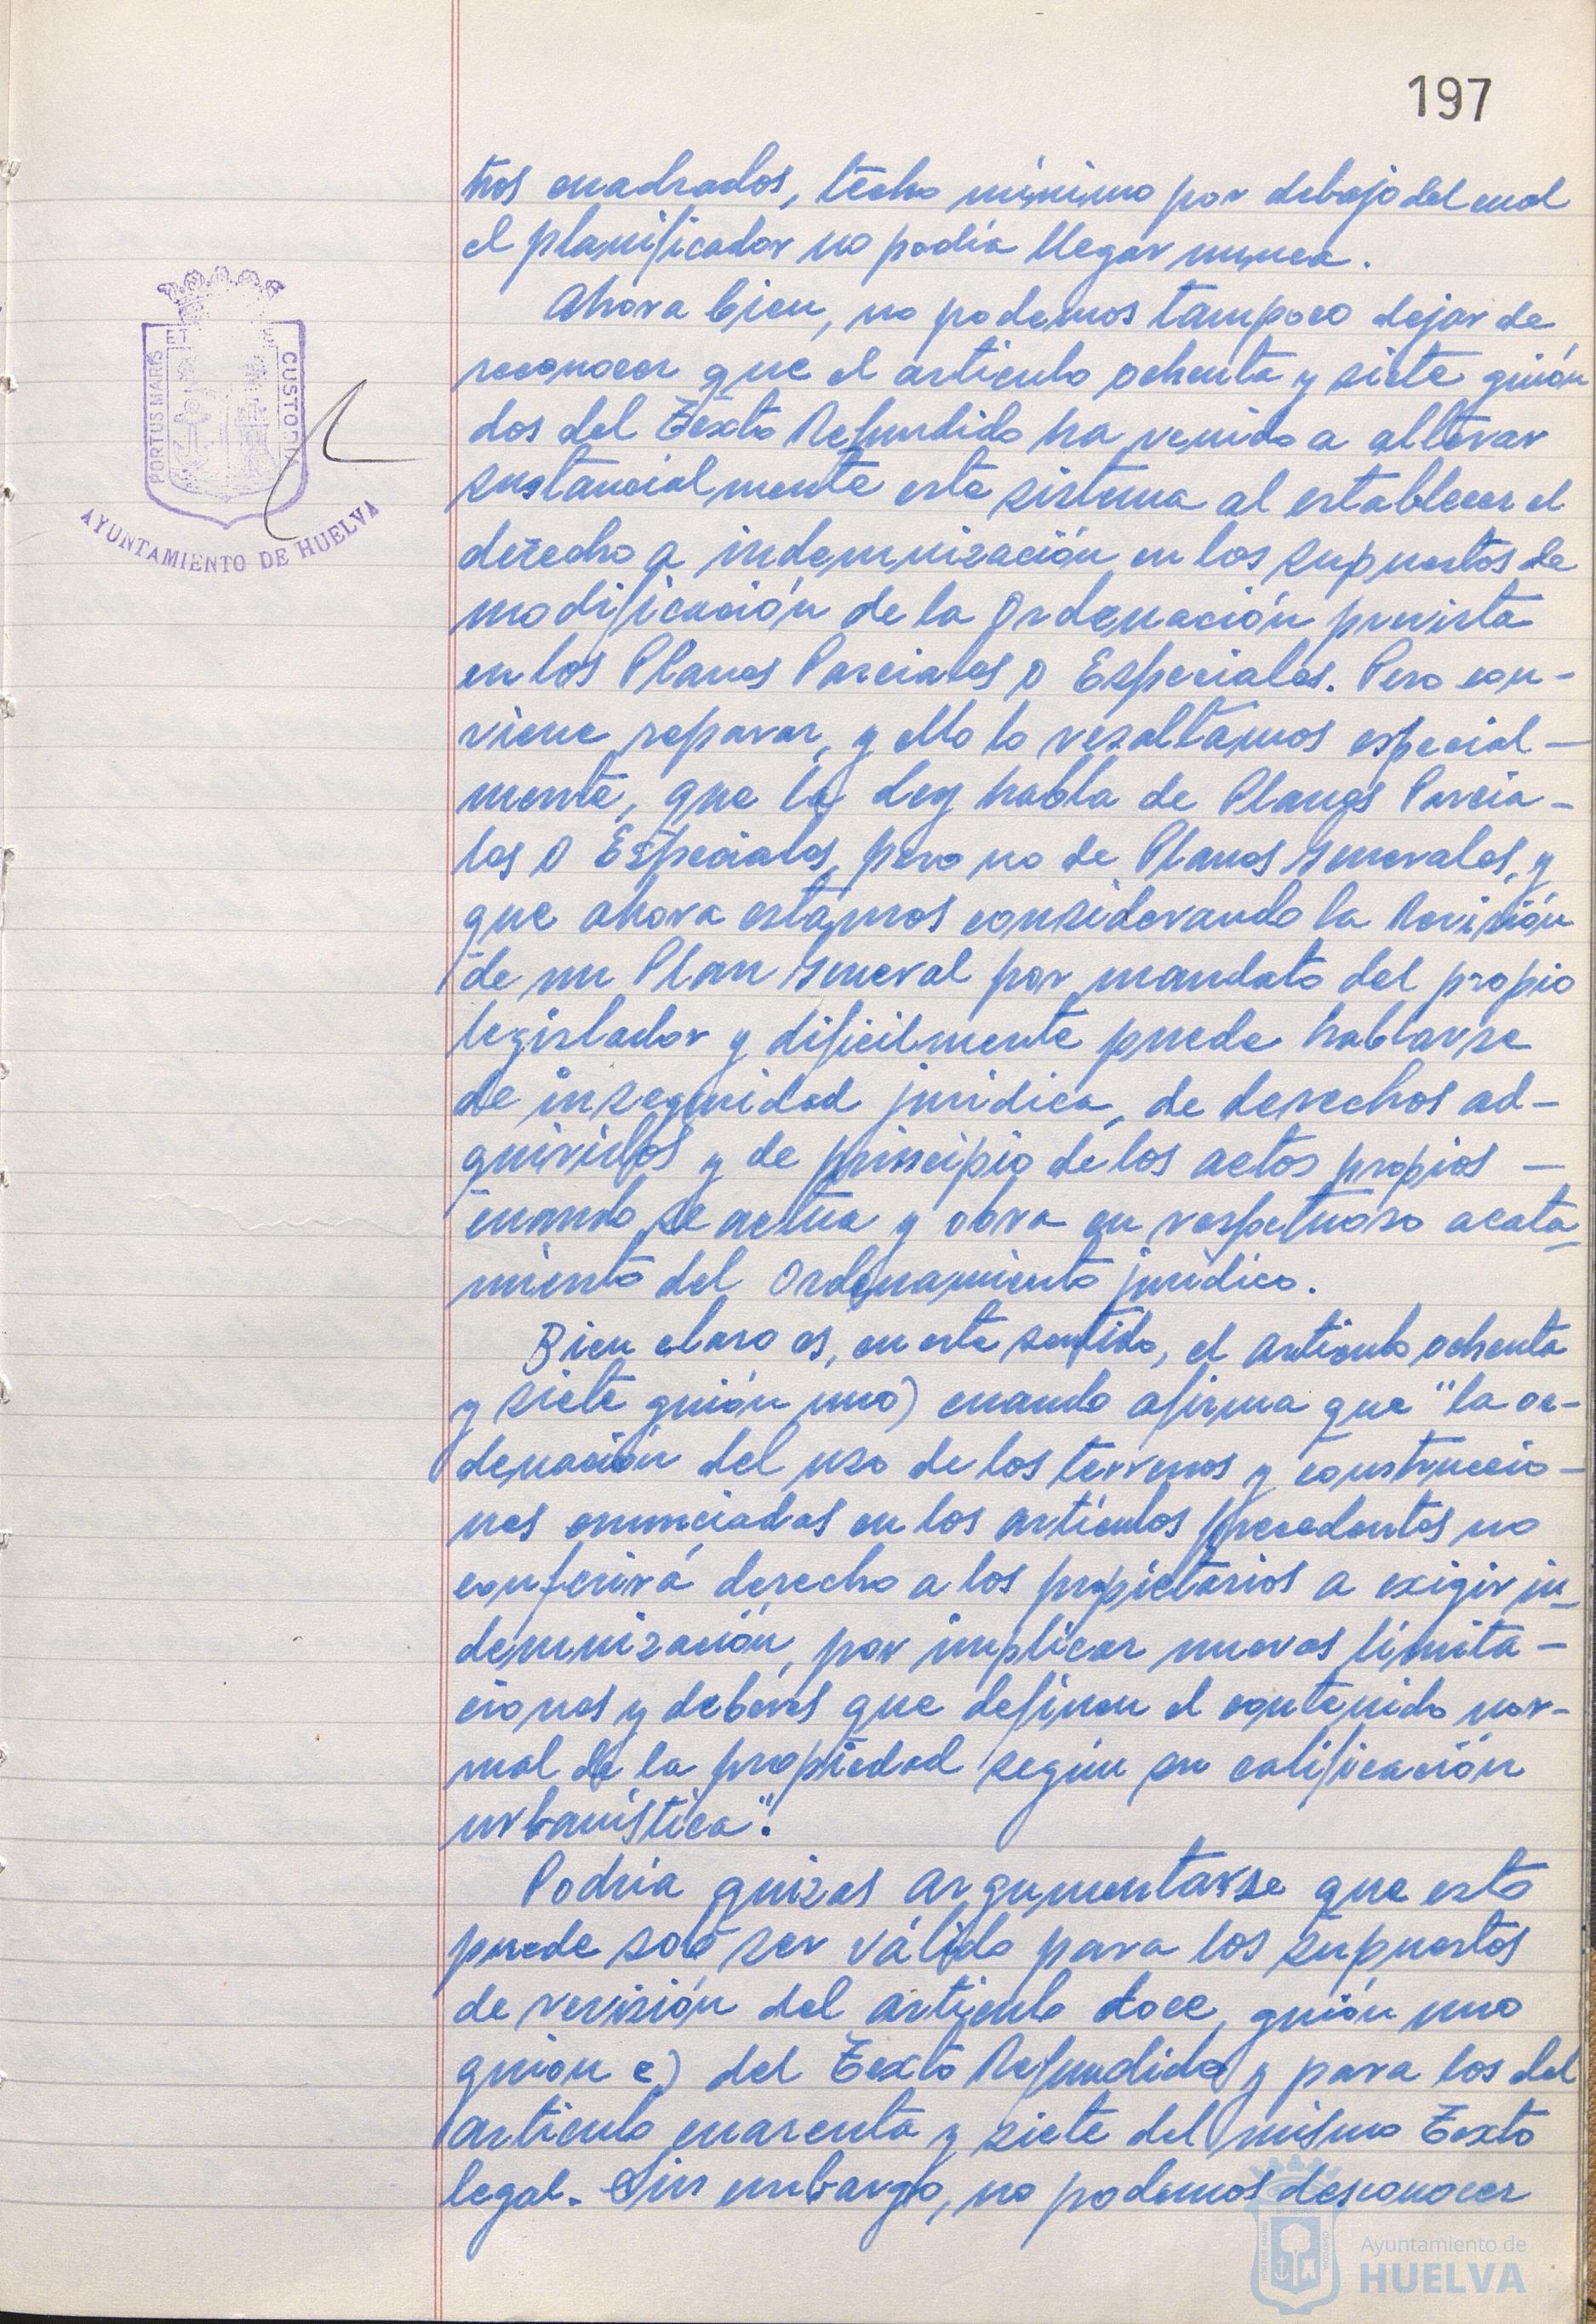 197
tros cuadrados, techo mínimo por debajo del cual
el planificador no podía llegar nunca.
Ahora bien, no podemos tampoco dejar de
reconocer que el articulo ochenta y siete guión
dos del Texto Refundido ha venido a alterar
sustancialmente este sistema al establecer el
derecho a indemnización en los supuestos de
modificación de la Ordenación prevista
en los Planes Parciales o Especiales. Pero con-
viene reparar, y ello lo resaltamos especial-
mente, que la Ley habla de Planes Parcia-
les o Especiales, pero no de Planes Generales, y
que ahora estamos considerando la Revisión
de un Plan General por mandato del propio
legislador y dificilmente puede hablarse
de inseguridad juridica, de derechos ad-
quiridos y de principio de los actos propios -
cuando se actua y obra en respetuoso acata-
miento del Ordenamiento jurídico.
Bien claro es, en este sentido, el articulo ochenta
y siete guión uno) cuando afirma que "la or-
denación del uso de los terrenos y construccio-
nes enunciadas en los artículos precedentes no
conferirá derecho a los propietarios a exigir in-
demnización, por implicar nuevas limita-
ciones y deberes que definen el contenido nor-
mal de la propiedad según su calificación
urbanística".
Podría quizas argumentarse que esto
puede solo ser válido para los supuestos
de revisión del articulo doce, guión uno
guion e) del Texto Refundido y para los del
articulo cuarenta y siete del mismo Texto
legal. Sin embargo, no podemos desconocer
PORTUS MARIS
CUSTODIA
AYUNTAMIENTO DE HUELVA
Ayuntamiento de
HUELVA